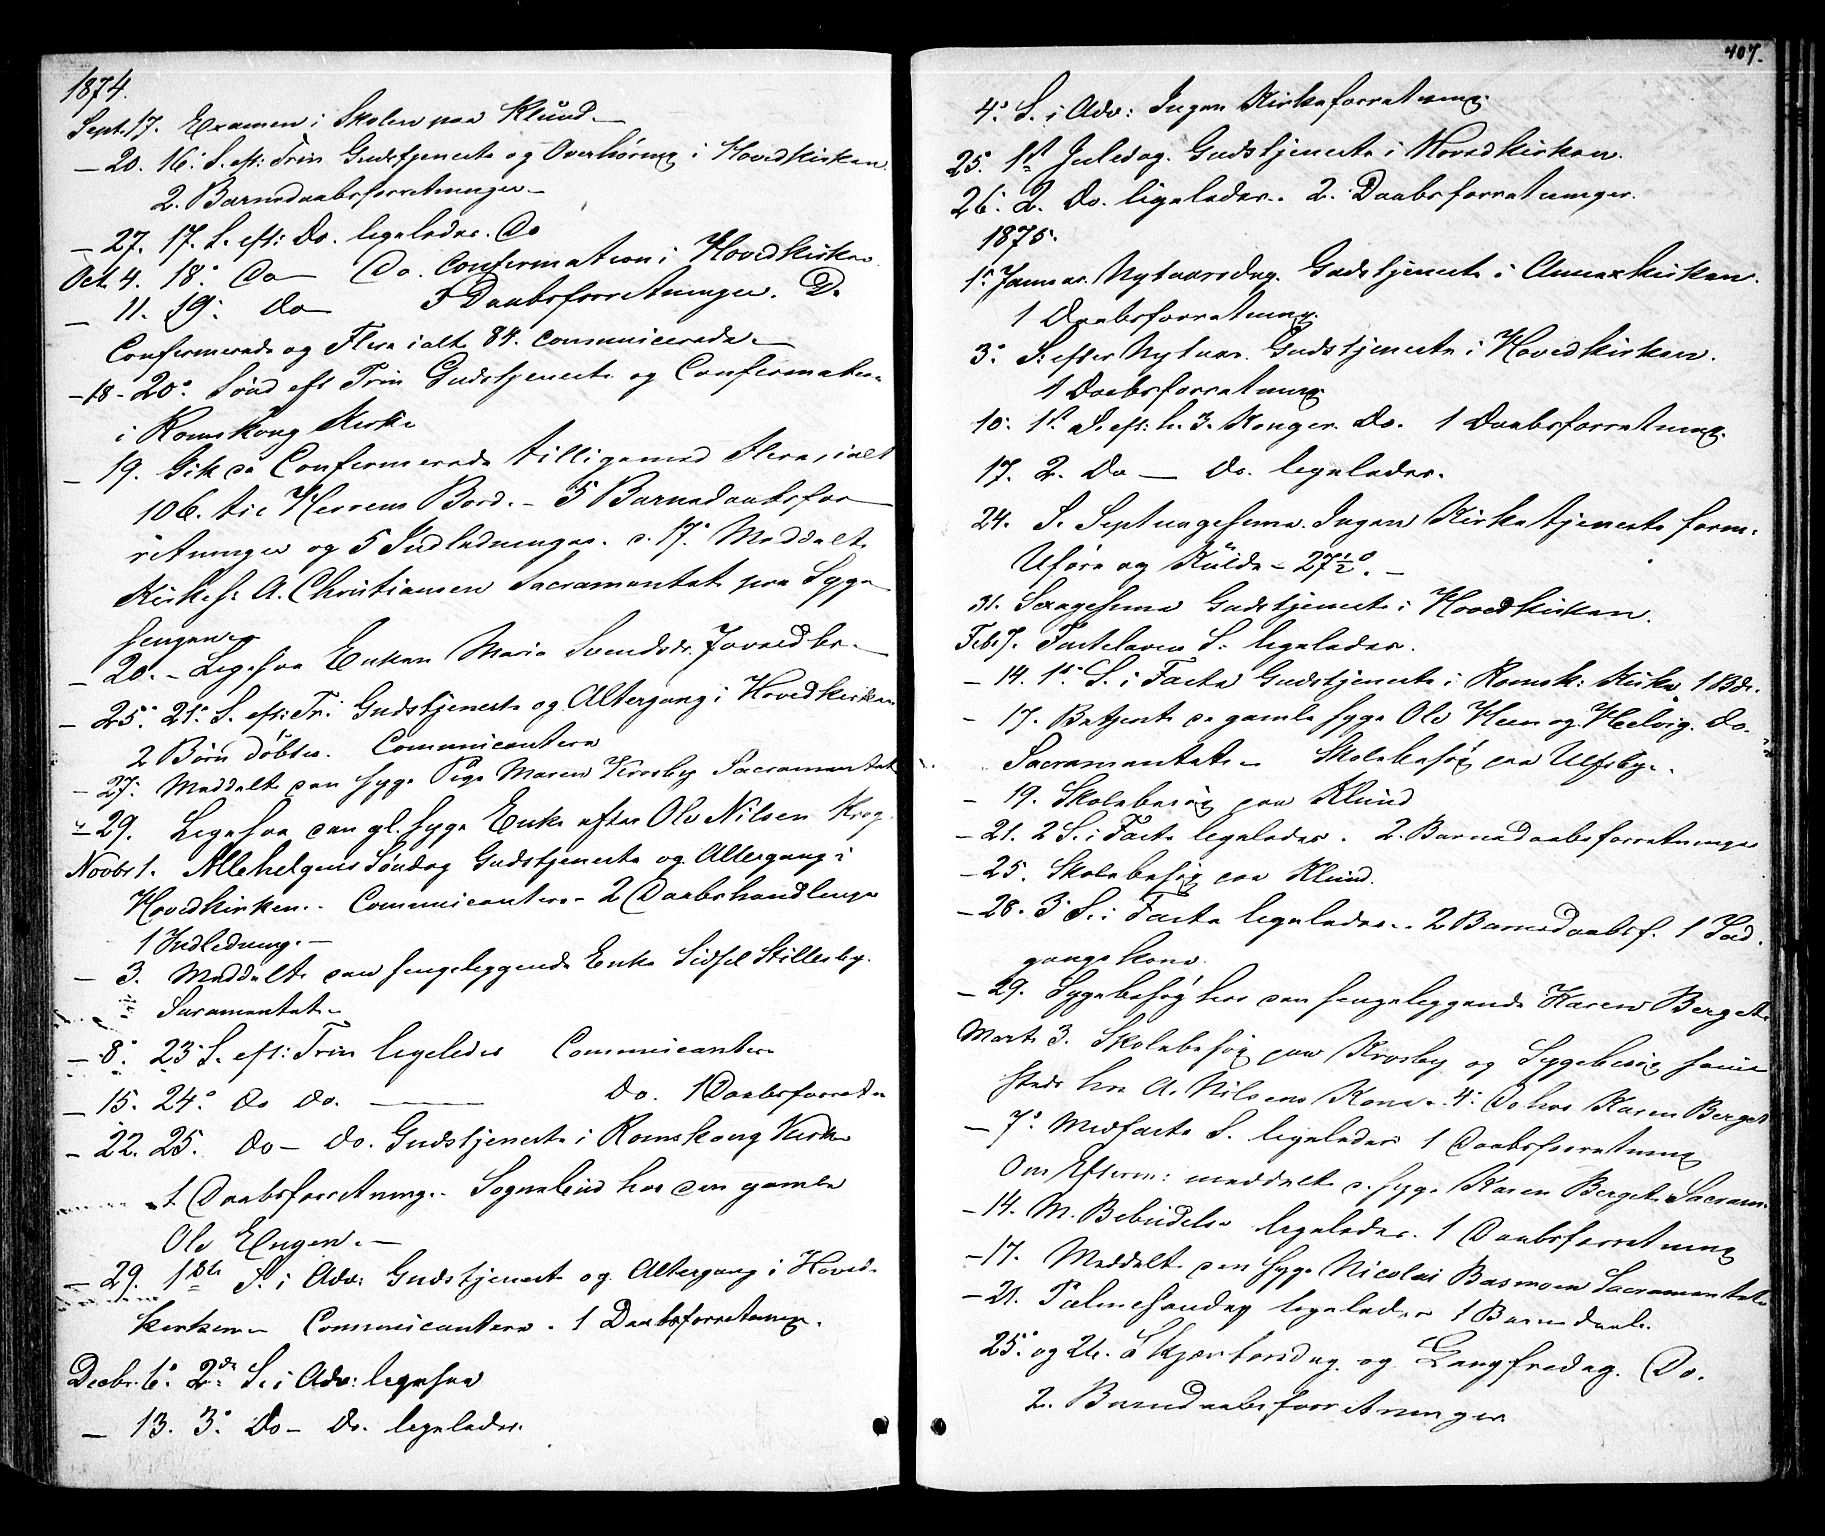 1874.
Sept. 17. Examen i Skolen paa Klund. —
— 20. 16. S. eft: Trin Gudstjeneste og Overhøring i Hovedkirken.
2. Barnedaabsforretninger. —
— 27. 17. S. eft: Do. ligeledes. Do
Oct. 4. 18° Do — Do. Confirmation i Hovedkirken.
— 11. 19° Do 3 Daabsforretninger. De
Confirmerede og Flere ialt 84. communicerede. —
— 18 – 20° Sønd eft Trin Gudstjeneste og Confirmation
i Romskoug Kirke
— 19. Gik de Confirmerede tilligemed Flere, ialt
106. til Herrens Bord. – 5 Barnedaabsfor
retninger og 5 Indledninger. d. 17° Meddelt
Kirkes: A. Christiansen Sacramentet paa Syge
sengen
— 20. – Ligesaa Enken Maria Svendsdr.
— 25° 21° S. eft: Tr: Gudstjeneste og Altergang i Hovedkirken
2 Børn døbtes. Communicantere
— 27. Meddelt den syge Pige Maren Krosby Sacramentet
— 29. Ligesaa den gl. syge Enke efter Ole Nilsen Krog.
Novbr 1. Allehelgens Søndag Gudstjeneste og Altergang i
Hovedkirken. – Communicantere – 2 Daabshandlinger
1 Indledning. —
— 3. Meddelt den sengeliggende Enke Sidsel Stillesby.
Sacramentet. –
— 8° 23 S. eft: Trin ligeledes Communicantere
— 15. 24° do do. — do. 1 Daabsforretn
— 22. 25. do – do. Gudstjeneste i Romskoug Kirke
1 Daabsforretning. – Sognebud hos den gamle
Ole Engen. —
— 29. 1ste S. i Adv: Gudstjeneste og Altergang i Hoved-
kirken – Communicantere. 1 Daabsforretning.
Decbr. 6° 2den S. i Adv: ligesaa
— 13. 3° Do – Do. ligeledes.
407.
4° S. i Adv: Ingen Kirkeforretning.
25. 1st Juledag. Gudstjeneste i Hovedkirken.
26. 2. Do. ligeledes. 2. Daabsforretninger.
1875.
1° Januar. Nytaarsdag. Gudstjeneste i Annexkirken.
1 Daabsforretning.
3° S. efter Nytaar. Gudstjeneste i Hovedkirken.
1 Daabsforretning.
10. 1st S. eft: h. 3 Konger. Do. 1 Daabsforretning.
17. 2. Do — do. ligeledes.
24. S. Septuagesima. Ingen Kirketjeneste form.
Uføre og Kulde – 27½°. –
31. Sexagesima Gudstjeneste i Hovedkirken.
Febr 7. Fastelavns S. ligeledes.
— 14. 1st S. i Faste Gudstjeneste i Romsk: Kirke 1 Bd.
— 17. Betjent de gamle syge Ole Heen og Helvig. do.
Sacramentet. – Skolebesøg paa Ulfsby.
— 19. Skolebesøg paa Klund
— 21. 2 S. i Faste ligeledes. 2. Barnedaabsforretninger
— 25. Skolebesøg paa Klund.
— 28. 3 S. i Faste ligeledes. 2 Barnedaabsf. 1 Ind-
gangskone.
— 29. Sygebesøg hos den sengeliggende Karen Berget.
Marts 3. Skolebesøg paa Krosby og Sygebesøg samme
steds hos A. Nilsens Kone. 4° Do hos Karen Berget
— 7° Midfaste S. ligeledes 1 Daabsforretning
Om Efterm: meddelt d. syge Karen Berget Sacram.
— 14. M. Bebudelse ligeledes. 1 Daabsforretning
— 17. Meddelt den syge Nicolai Basmoen Sacramentet
— 21. Palmesøndag ligeledes 1 Barnedaab.
25° og 26. Skjærtorsdag og Langfredag. Do.
2. Barnedaabsforretninger